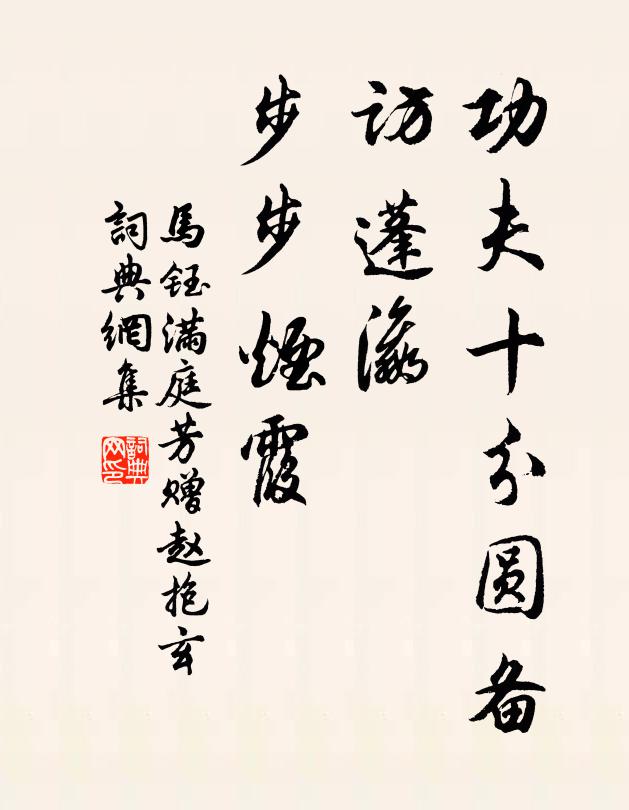 功夫十分圆备
访蓬瀛
步步烟霞
馬鈺满庭芳赠赵抱玄
詞典網集
詞典网印